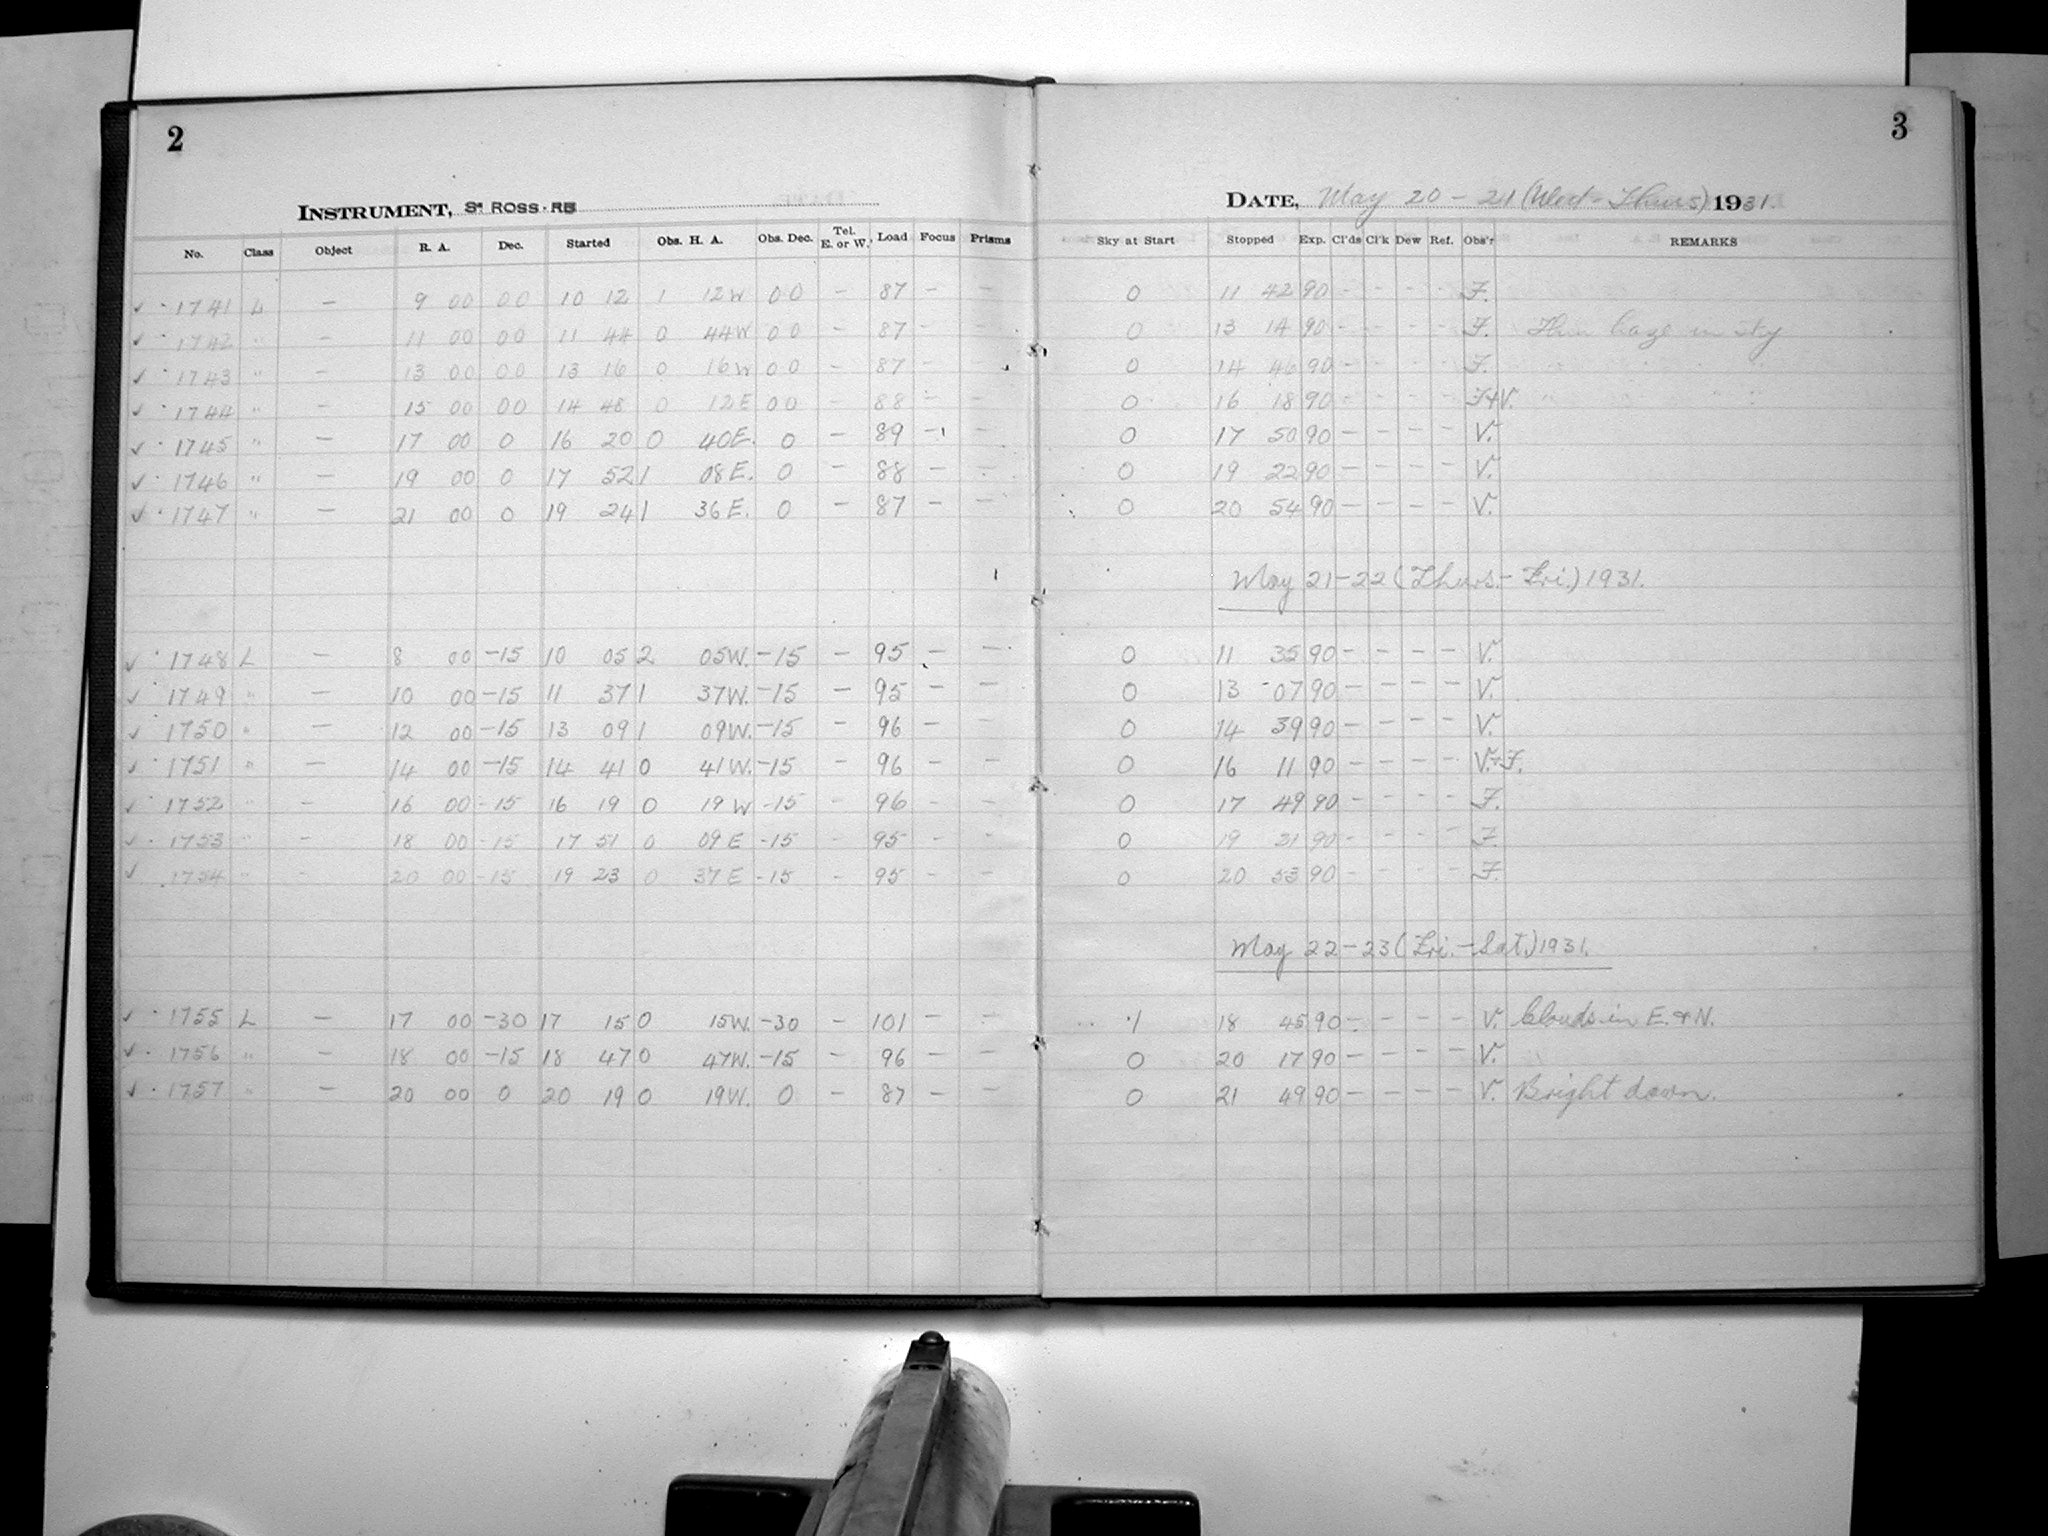 2
INSTRUMENT, Sª ROSS-RB
No. Class Object R. A. Dec. Started Obs. H. A. Obs. Dec. Tel. E. or W. Load Focus Prisms
✓ · 1741 L — 9 00 00 10 12 1 12W 00 — 87 — —
✓ · 1742 " — 11 00 00 11 44 0 44W 00 — 87 — —
✓ · 1743 " — 13 00 00 13 16 0 16W 00 — 87 — —
✓ · 1744 " — 15 00 00 14 48 0 12E 00 — 88 — —
✓ · 1745 " — 17 00 0 16 20 0 40E. 0 — 89 — —
✓ · 1746 " — 19 00 0 17 52 1 08E. 0 — 88 — —
✓ · 1747 " — 21 00 0 19 24 1 36E. 0 — 87 — —
✓ · 1748 L — 8 00 -15 10 05 2 05W. -15 — 95 — —
✓ · 1749 " — 10 00 -15 11 37 1 37W. -15 — 95 — —
✓ · 1750 " — 12 00 -15 13 09 1 09W. -15 — 96 — —
✓ · 1751 " — 14 00 -15 14 41 0 41W. -15 — 96 — —
✓ · 1752 " — 16 00 -15 16 19 0 19W -15 — 96 — —
✓ · 1753 " — 18 00 -15 17 51 0 09E -15 — 95 — —
✓ · 1754 " — 20 00 -15 19 23 0 37E -15 — 95 — —
✓ · 1755 L — 17 00 -30 17 15 0 15W. -30 — 101 — —
✓ · 1756 " — 18 00 -15 18 47 0 47W. -15 — 96 — —
✓ · 1757 " — 20 00 0 20 19 0 19W. 0 — 87 — —
3
DATE, May 20-21 (Wed-Thurs) 1931.
Sky at Start Stopped Exp. Cl'ds Cl'k Dew Ref. Obs'r REMARKS
0 11 42 90 — — — — F.
0 13 14 90 — — — — F. Thin haze in sky
0 14 46 90 — — — — F. " " " "
0 16 18 90 — — — — F+V. " " " "
0 17 50 90 — — — — V.
0 19 22 90 — — — — V.
0 20 54 90 — — — — V.
May 21-22 (Thurs.-Fri.) 1931.
0 11 35 90 — — — — V.
0 13 07 90 — — — — V.
0 14 39 90 — — — — V.
0 16 11 90 — — — — V.+F.
0 17 49 90 — — — — F.
0 19 21 90 — — — — F.
0 20 53 90 — — — — F.
May 22-23 (Fri.-Sat.) 1931.
1 18 45 90 — — — — V. Clouds in E. & N.
0 20 17 90 — — — — V.
0 21 49 90 — — — — V. Bright dawn.